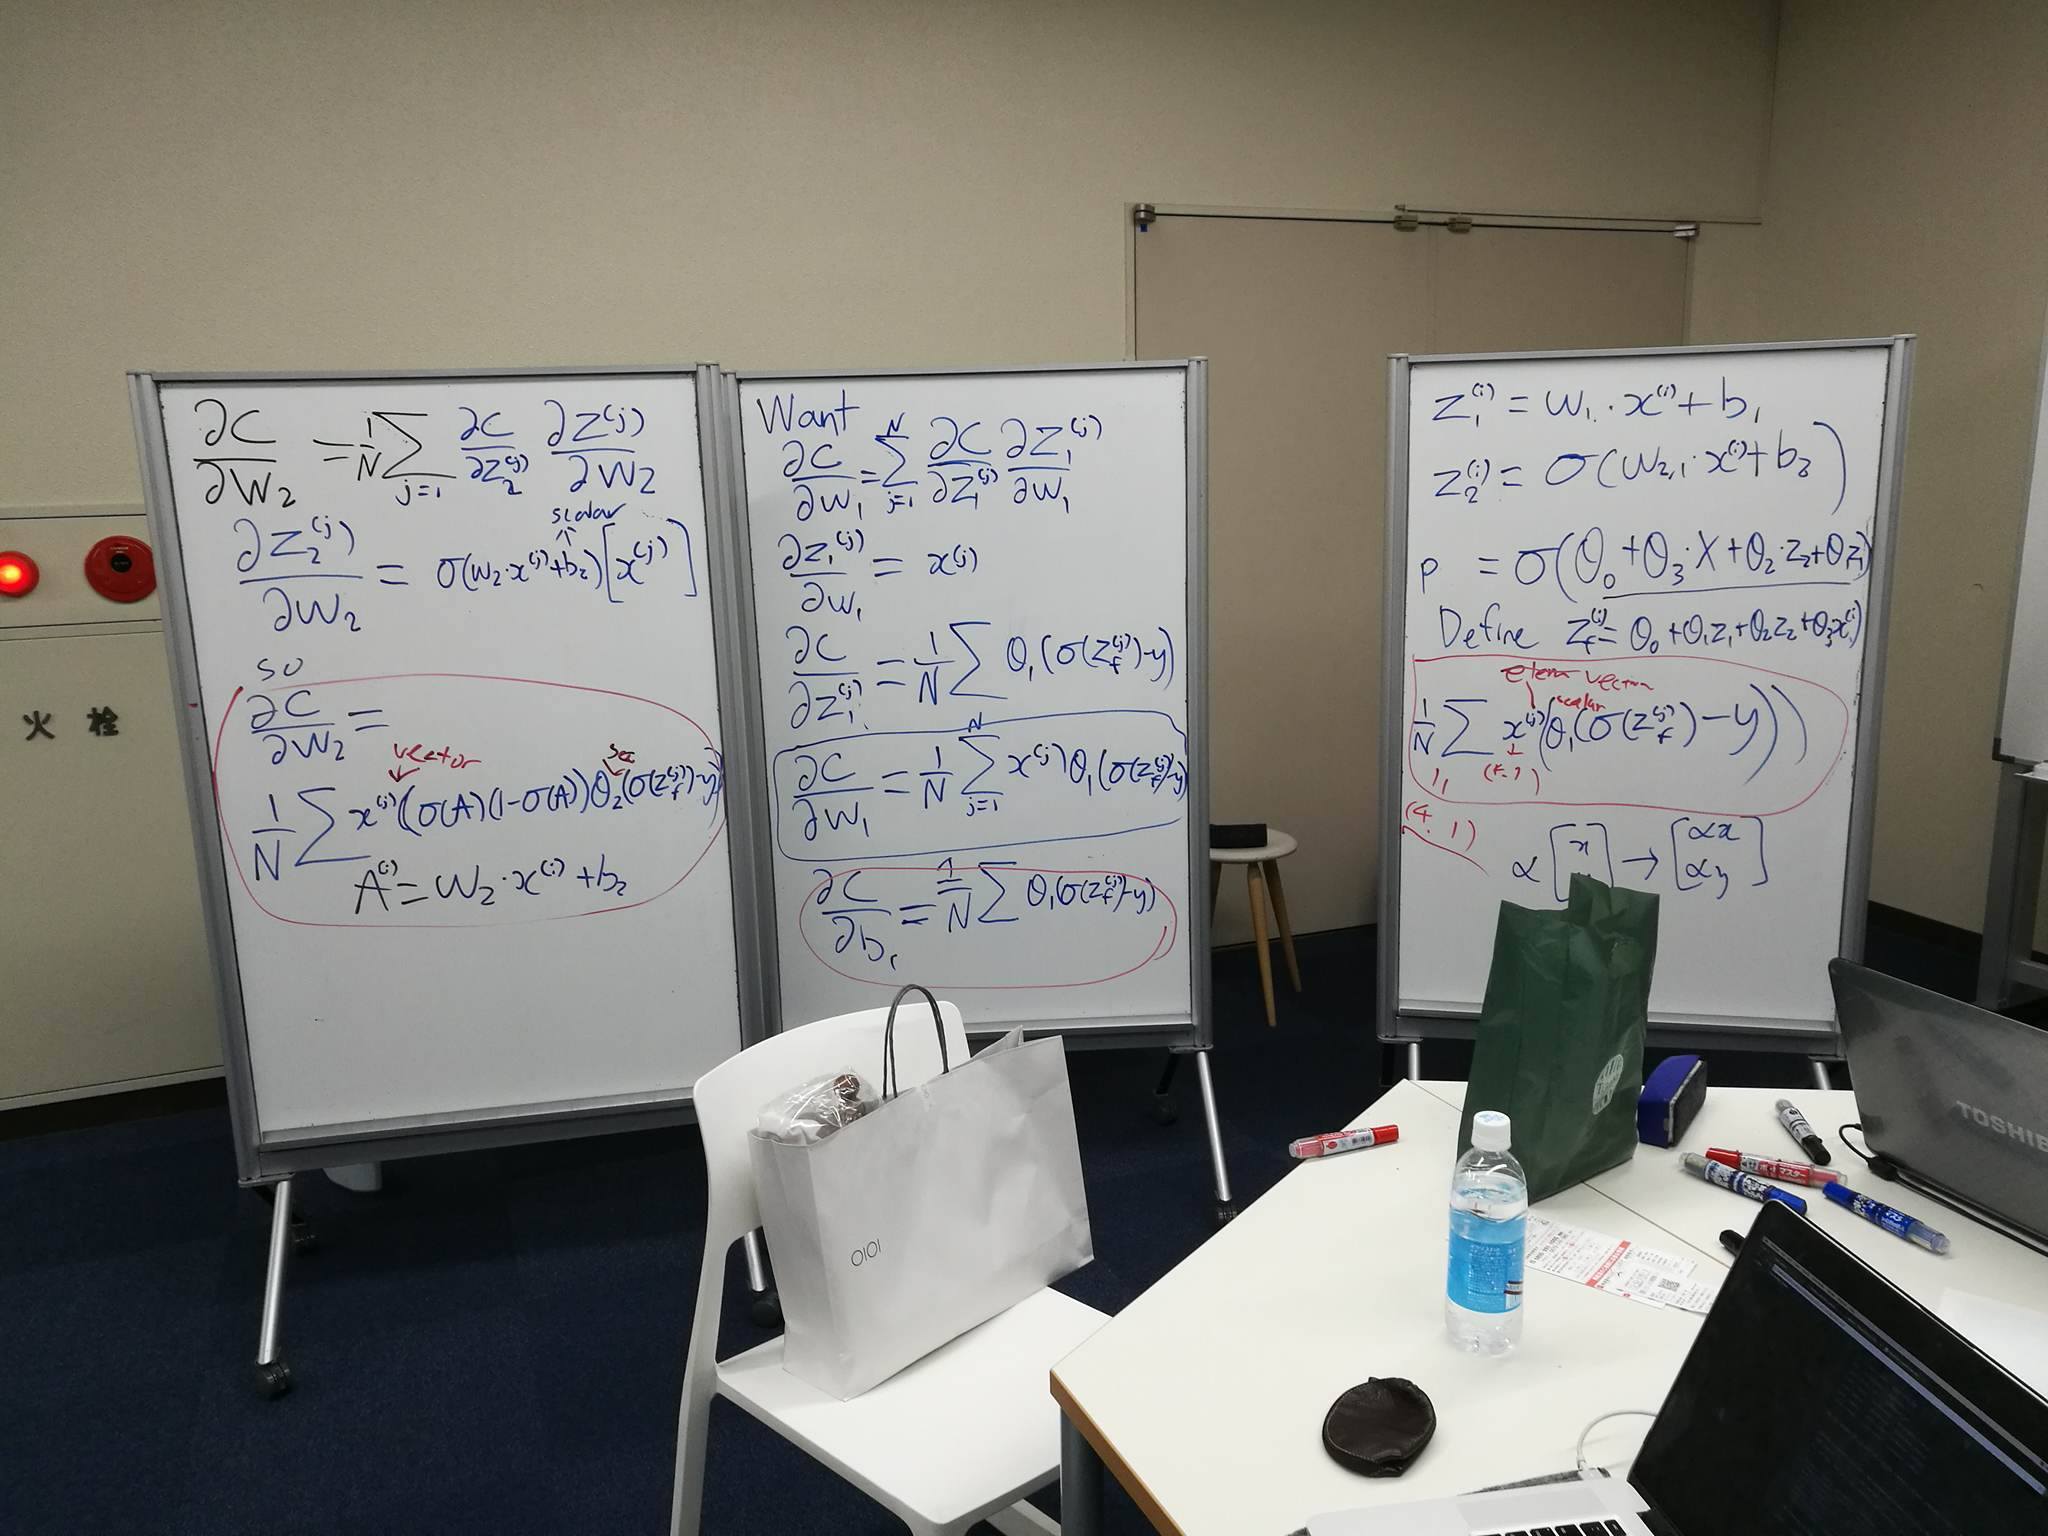 ∂C/∂W₂ = 1/N ∑_{j=1} ∂C/∂Z₂^(j) ∂Z^(j)/∂W₂
scalar
∂Z₂^(j)/∂W₂ = σ(w₂·x^(j)+b₂)[x^(j)]
so
∂C/∂W₂ =
vector
1/N ∑ x^(j)((σ(A)(1-σ(A))θ₂(σ(Z_f^(j))-y)
A^(i) = W₂·x^(i)+b₂
Want
∂C/∂W₁ = ∑_{j=1}^N ∂C/∂Z₁^(j) ∂Z₁^(j)/∂W₁
∂Z₁^(j)/∂W₁ = x^(j)
∂C/∂Z₁^(j) = 1/N ∑ θ₁(σ(Z_f^(j))-y)
∂C/∂W₁ = 1/N ∑_{j=1}^N x^(j)θ₁(σ(Z_f^(j))-y)
∂C/∂b₁ = 1/N ∑ θ₁(σ(Z_f^(j))-y)
Z₁^(i) = W₁·x^(i)+b₁
Z₂^(i) = σ(W₂,₁·x^(i)+b₃)
p = σ(θ₀+θ₃·X+θ₂·Z₂+θZ₁)
Define Z_f^(i) = θ₀+θ₁Z₁+θ₂Z₂+θ₃x^(i)
vector
scalar
1/N ∑ x^(j)(θ₁(σ(Z_f^(j))-y))
(4, 1)
α[x → [αx
αy]
火栓
OIOI
TOSHIB